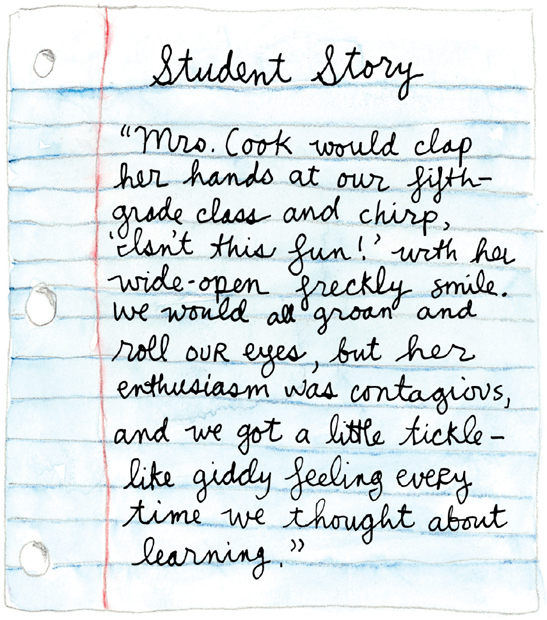 Student Story
"Mrs. Cook would clap
her hands at our fifth-
grade class and chirp,
'Isn't this fun!' with her
wide-open freckly smile.
We would all groan and
roll our eyes, but her
enthusiasm was contagious,
and we got a little tickle-
like giddy feeling every
time we thought about
learning."